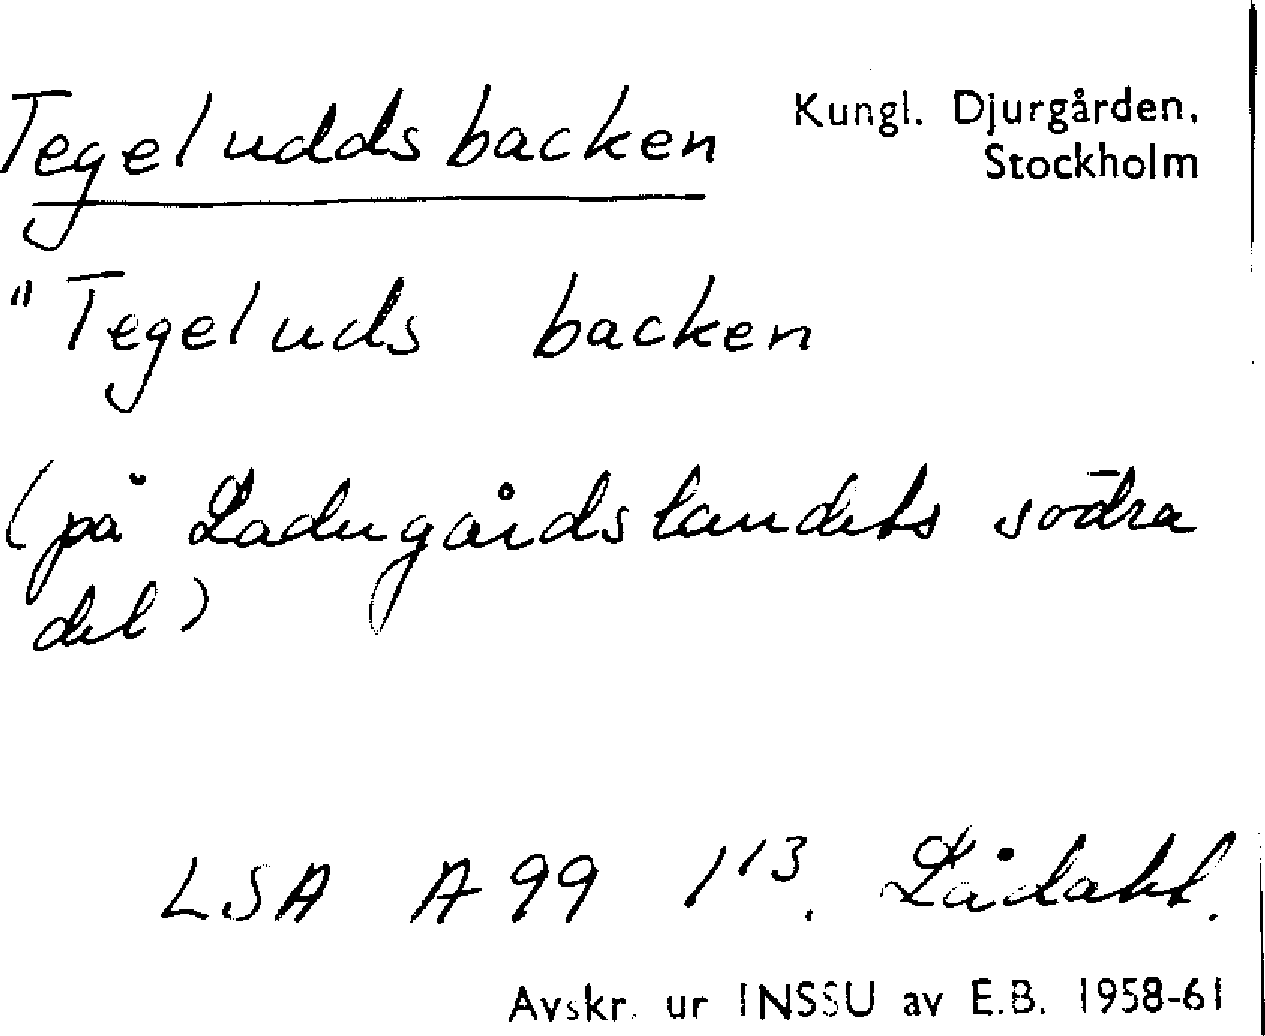 Tegeluddsbacken
Kungl. Djurgården.
Stockholm
"Tegeluds backen
(på Ladugårdslandets södra
del)
LSA A99 1¹³. Lådakt.
Avskr. ur INSSU av E.B. 1958-61